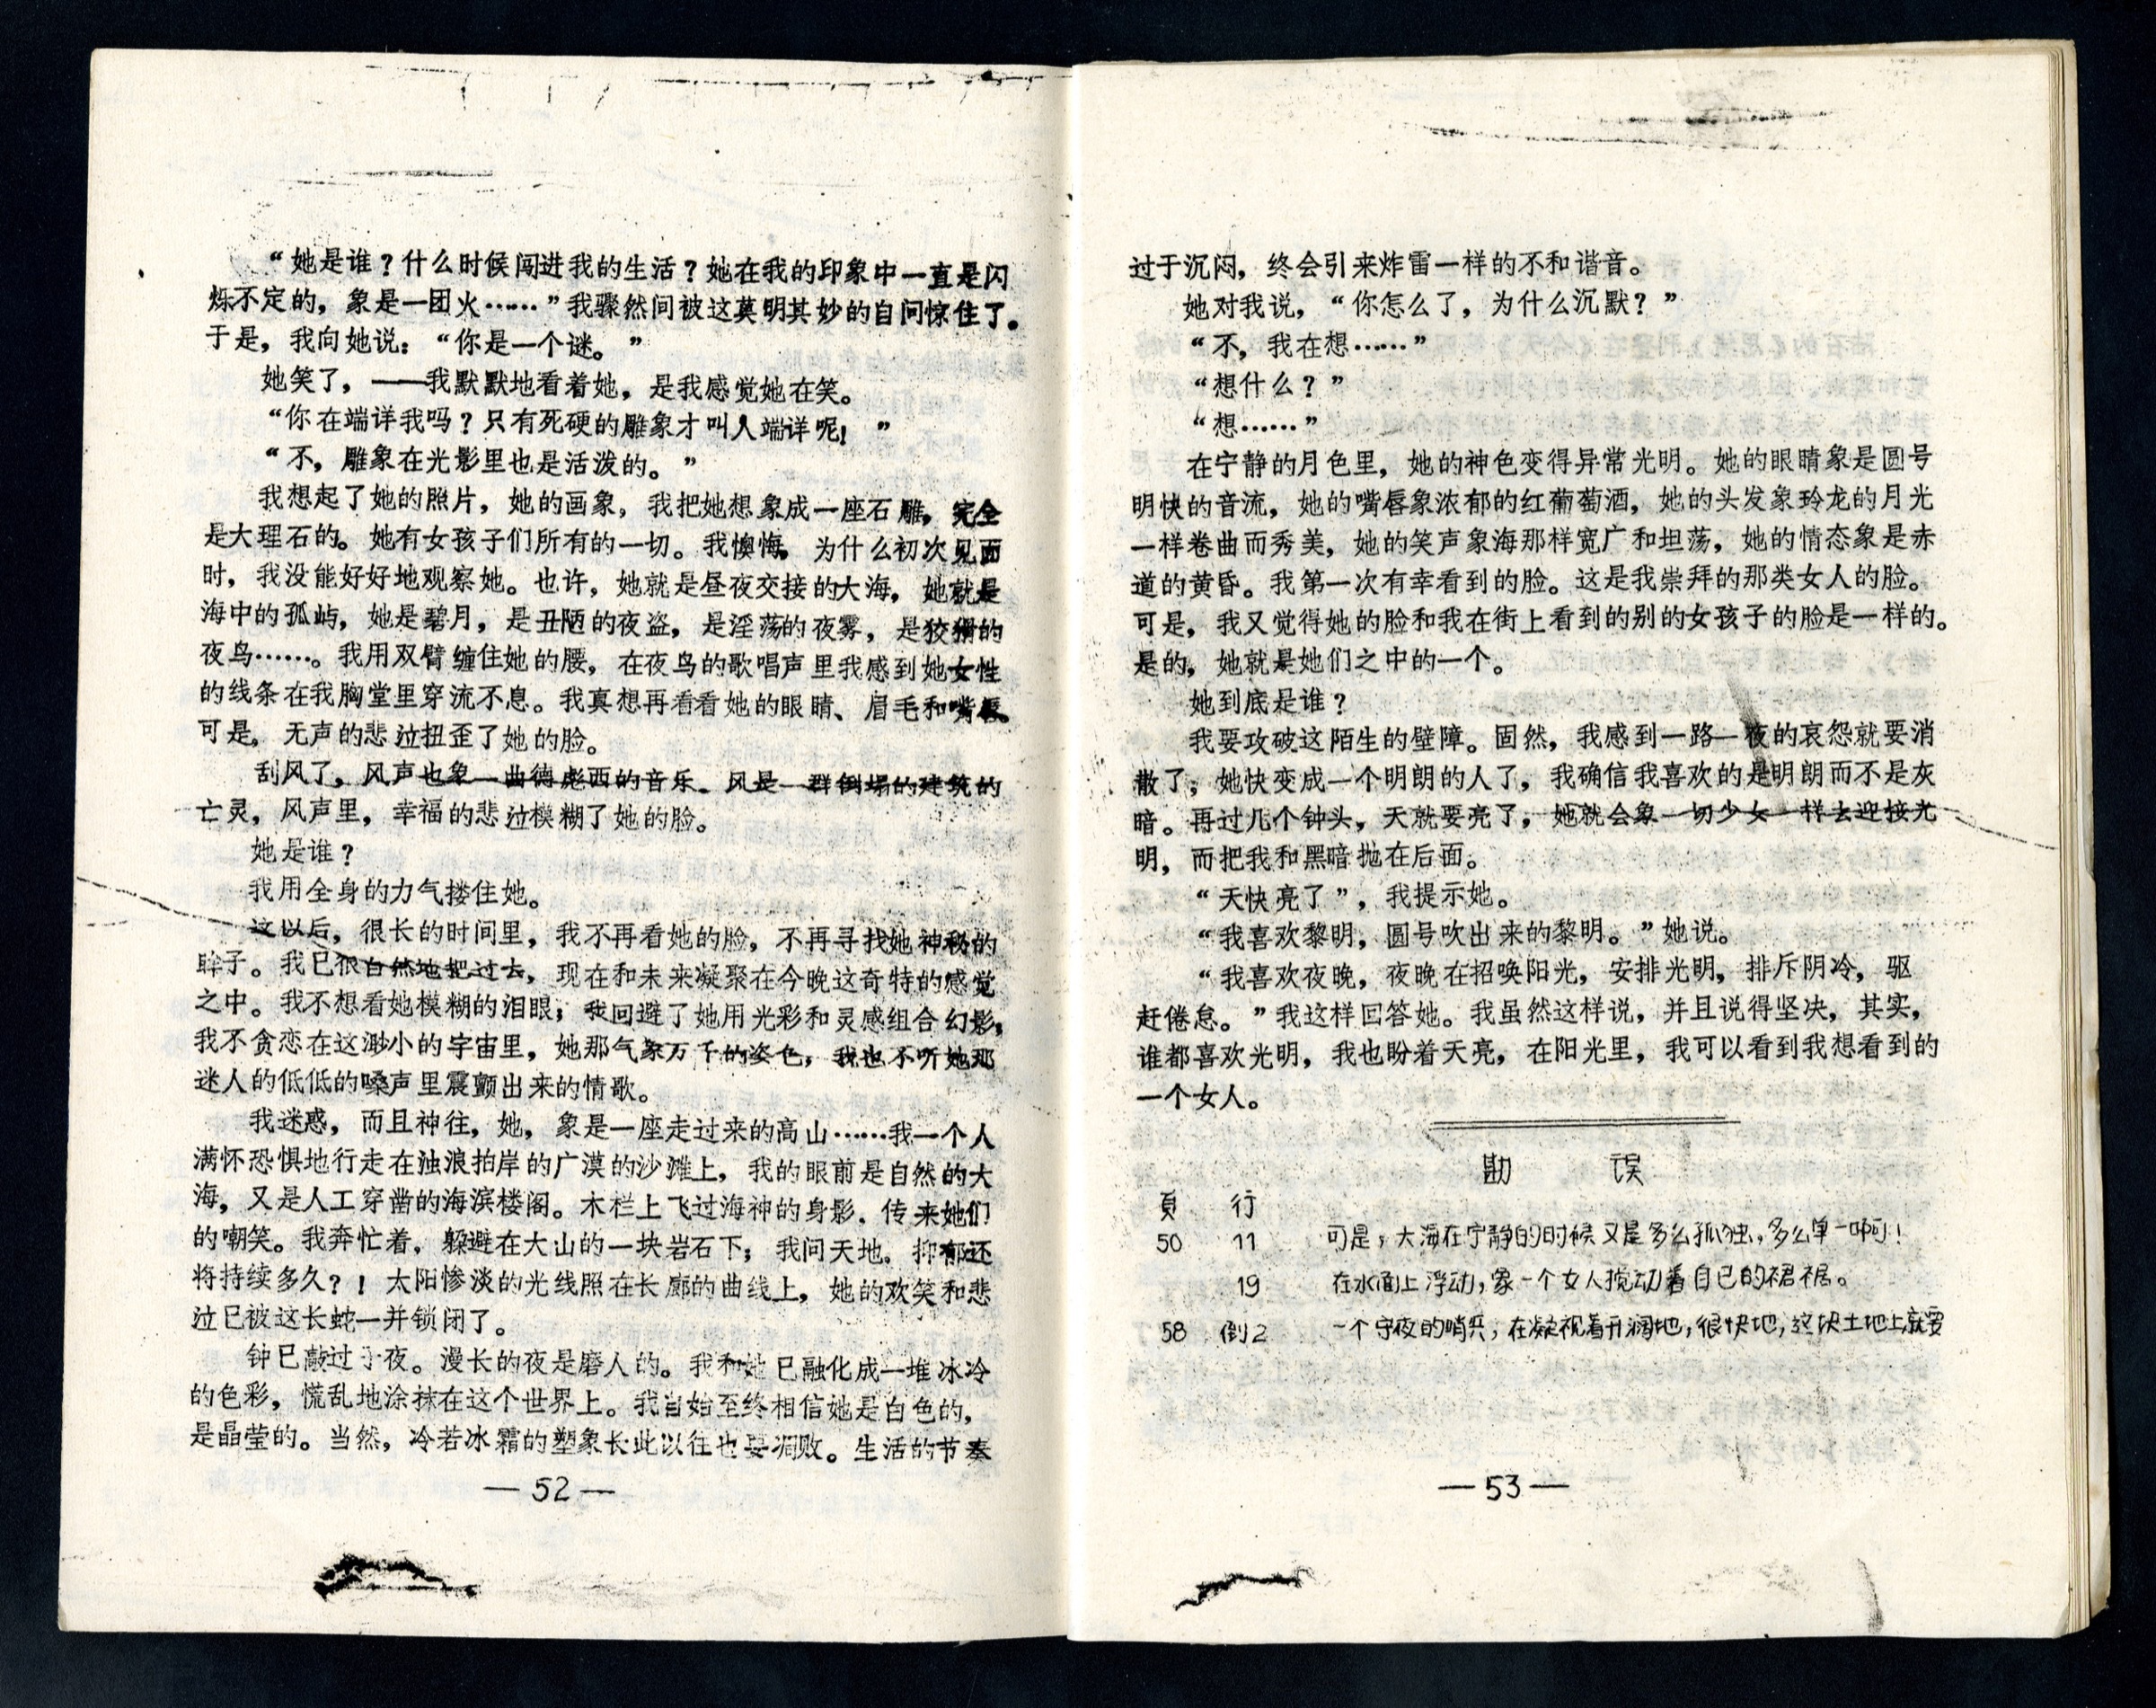 “她是谁？什么时候闯进我的生活？她在我的印象中一直是闪
烁不定的，象是一团火……”我骤然间被这莫明其妙的自问惊住了。
于是，我向她说：“你是一个谜。”
她笑了，——我默默地看着她，是我感觉她在笑。
“你在端详我吗？只有死硬的雕象才叫人端详呢！”
“不，雕象在光影里也是活泼的。”
我想起了她的照片，她的画象，我把她想象成一座石雕，完全
是大理石的。她有女孩子们所有的一切。我懊悔，为什么初次见面
时，我没能好好地观察她。也许，她就是昼夜交接的大海，她就是
海中的孤屿，她是碧月，是丑陋的夜盗，是淫荡的夜雾，是狡猾的
夜鸟……。我用双臂缠住她的腰，在夜鸟的歌唱声里我感到她女性
的线条在我胸堂里穿流不息。我真想再看看她的眼睛、眉毛和嘴唇。
可是，无声的悲泣扭歪了她的脸。
刮风了，风声也象一曲德彪西的音乐。风是一群倒塌的建筑的
亡灵，风声里，幸福的悲泣模糊了她的脸。
她是谁？
我用全身的力气搂住她。
这以后，很长的时间里，我不再看她的脸，不再寻找她神秘的
眸子。我已很自然地把过去，现在和未来凝聚在今晚这奇特的感觉
之中。我不想看她模糊的泪眼；我回避了她用光彩和灵感组合幻影，
我不贪恋在这渺小的宇宙里，她那气象万千的姿色，我也不听她那
迷人的低低的嗓声里震颤出来的情歌。
我迷惑，而且神往，她，象是一座走过来的高山……我一个人
满怀恐惧地行走在浊浪拍岸的广漠的沙滩上，我的眼前是自然的大
海，又是人工穿凿的海滨楼阁。木栏上飞过海神的身影．传来她们
的嘲笑。我奔忙着，躲避在大山的一块岩石下；我问天地．抑郁还
将持续多久？！太阳惨淡的光线照在长廊的曲线上，她的欢笑和悲
泣已被这长蛇一并锁闭了。
钟已敲过子夜。漫长的夜是磨人的。我和她已融化成一堆冰冷
的色彩，慌乱地涂抹在这个世界上。我自始至终相信她是白色的，
是晶莹的。当然，冷若冰霜的塑象长此以往也要凋败。生活的节奏
—52—
过于沉闷，终会引来炸雷一样的不和谐音。
她对我说，“你怎么了，为什么沉默？”
“不，我在想……”
“想什么？”
“想……”
在宁静的月色里，她的神色变得异常光明。她的眼睛象是圆号
明快的音流，她的嘴唇象浓郁的红葡萄酒，她的头发象玲龙的月光
一样卷曲而秀美，她的笑声象海那样宽广和坦荡，她的情态象是赤
道的黄昏。我第一次有幸看到的脸。这是我崇拜的那类女人的脸。
可是，我又觉得她的脸和我在街上看到的别的女孩子的脸是一样的。
是的，她就是她们之中的一个。
她到底是谁？
我要攻破这陌生的壁障。固然，我感到一路一夜的哀怨就要消
散了，她快变成一个明朗的人了，我确信我喜欢的是明朗而不是灰
暗。再过几个钟头，天就要亮了，她就会象一切少女一样去迎接光
明，而把我和黑暗抛在后面。
“天快亮了”，我提示她。
“我喜欢黎明，圆号吹出来的黎明。”她说。
“我喜欢夜晚，夜晚在招唤阳光，安排光明，排斥阴冷，驱
赶倦怠。”我这样回答她。我虽然这样说，并且说得坚决，其实，
谁都喜欢光明，我也盼着天亮，在阳光里，我可以看到我想看到的
一个女人。
勘 误
頁 行
50 11 可是，大海在宁静的时候又是多么孤独，多么单一啊！
19 在水面上浮动，象一个女人搅动着自己的裙裾。
58 倒2 一个守夜的哨兵，在凝视着开阔地，很快地，这块土地上就要
—53—